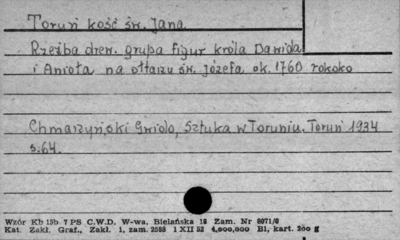 Toruń kość św. Jana
Rzeźba drew. grupa figur króla Dawida
i Anioła na ołtarzu św. Józefa ok. 1760 rokoko
Chmarzyński Gwido, Sztuka w Toruniu. Toruń 1934
s. 64.
Wzór Kb 15b 7 PS C.W.D. W-wa, Bielańska 18 Zam. Nr 8071/8
Kat. Zakł. Graf., Zakł. 1, zam. 2588 1 XII 52 4,000,000 Bl, kart. 200 g